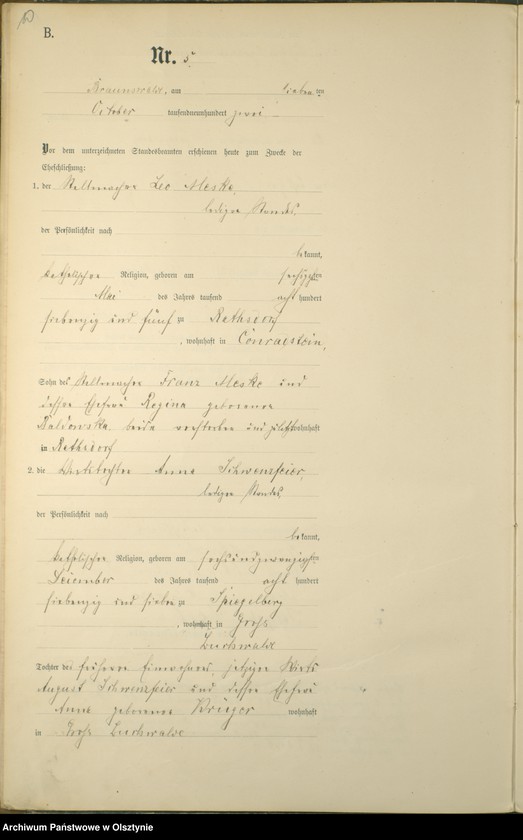 B.
Nr. 5
Braunswalde, am sieben ten
October tausendneunhundert zwei
Vor dem unterzeichneten Standesbeamten erschienen heute zum Zwecke der
Eheschließung:
1. der Stellmacher Leo Meske,
ledigen Standes,
der Persönlichkeit nach
bekannt,
katholischer Religion, geboren am
Mai des Jahres tausend acht hundert
siebenzig und fünf zu Rethsdorf
, wohnhaft in Conradstein,
Sohn des Stellmacher Franz Meske und
dessen Ehefrau Regina geborenen
beide verstorben und zuletzt wohnhaft
in Rethsdorf
2. die Wirtstochter Anna Schwenzfeier,
ledigen Standes
der Persönlichkeit nach
bekannt,
katholischer Religion, geboren am sechsundzwanzigsten
Dezember des Jahres tausend acht hundert
siebenzig und sieben zu Spiegelberg
, wohnhaft in Groß
Buchwalde
Tochter des früheren Einwohners, jetzigen Wirts
August Schwenzfeier und dessen Ehefrau
Anna geborenen Krüger wohnhaft
in Groß Buchwalde
Archiwum Państwowe w Olsztynie